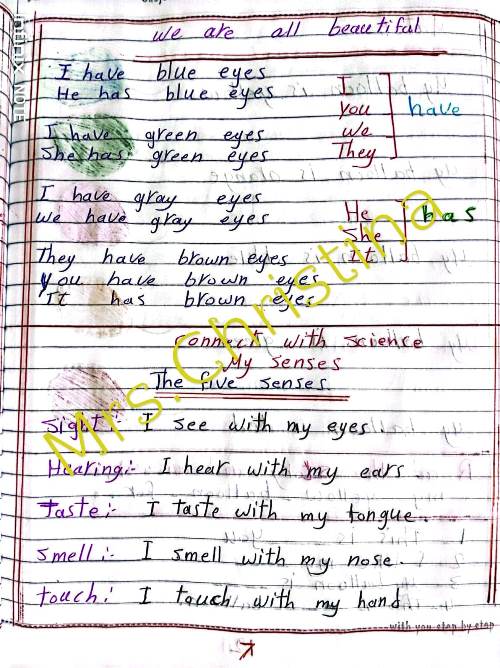 we are all beautiful
I have blue eyes
He has blue eyes
I have green eyes
She has green eyes
I
you
we
They
have
I have gray eyes
we have gray eyes
He
She
It
has
They have brown eyes
you have brown eyes
It has brown eyes
connect with science
My senses
The five senses
Sight:- I see with my eyes.
Hearing:- I hear with my ears
Taste:- I taste with my tongue.
smell:- I smell with my nose.
touch:- I touch with my hand
with you step by step
Mrs. Christina
REDMI NOTE